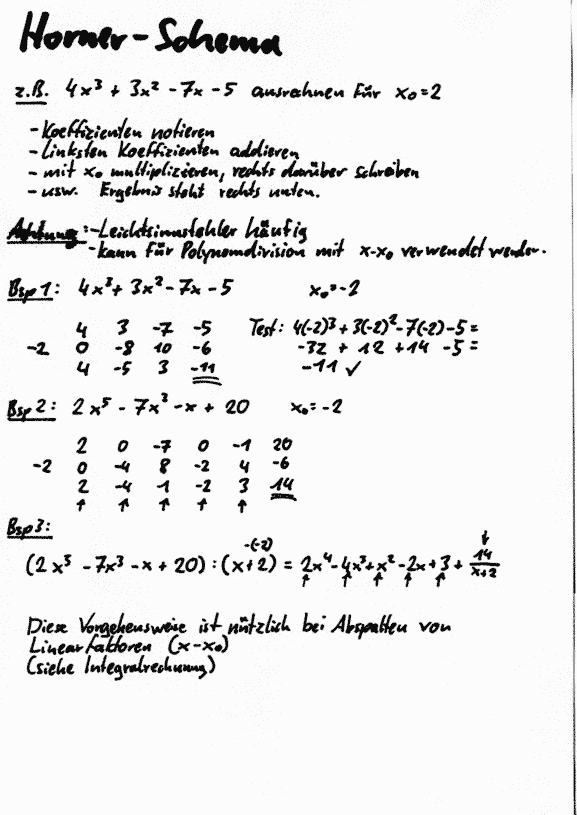 Horner-Schema
z.B. 4x³ + 3x² - 7x - 5 ausrechnen für x₀=2
- Koeffizienten notieren
- Linksten Koeffizienten addieren
- mit x₀ multiplizieren, rechts darüber schreiben
- usw. Ergebnis steht rechts unten.
Achtung: - Leichtsinnsfehler häufig
- kann für Polynomdivision mit x-x₀ verwendet werden.
Bsp 1: 4x³ + 3x² - 7x - 5 x₀=-2
4 3 -7 -5 Test: 4(-2)³ + 3(-2)² - 7(-2) - 5 =
-2 0 -8 10 -6 -32 + 12 + 14 - 5 =
4 -5 3 -11 -11 ✓
Bsp 2: 2x⁵ - 7x³ - x + 20 x₀=-2
2 0 -7 0 -1 20
-2 0 -4 8 -2 4 -6
2 -4 1 -2 3 14
↑ ↑ ↑ ↑ ↑
Bsp 3:
-(-2) ↓
(2x⁵ - 7x³ - x + 20) : (x+2) = 2x⁴ - 4x³ + x² - 2x + 3 + 14/(x+2)
↑ ↑ ↑ ↑ ↑
Diese Vorgehensweise ist nützlich bei Abspalten von
Linearfaktoren (x-x₀)
(siehe Integralrechnung)